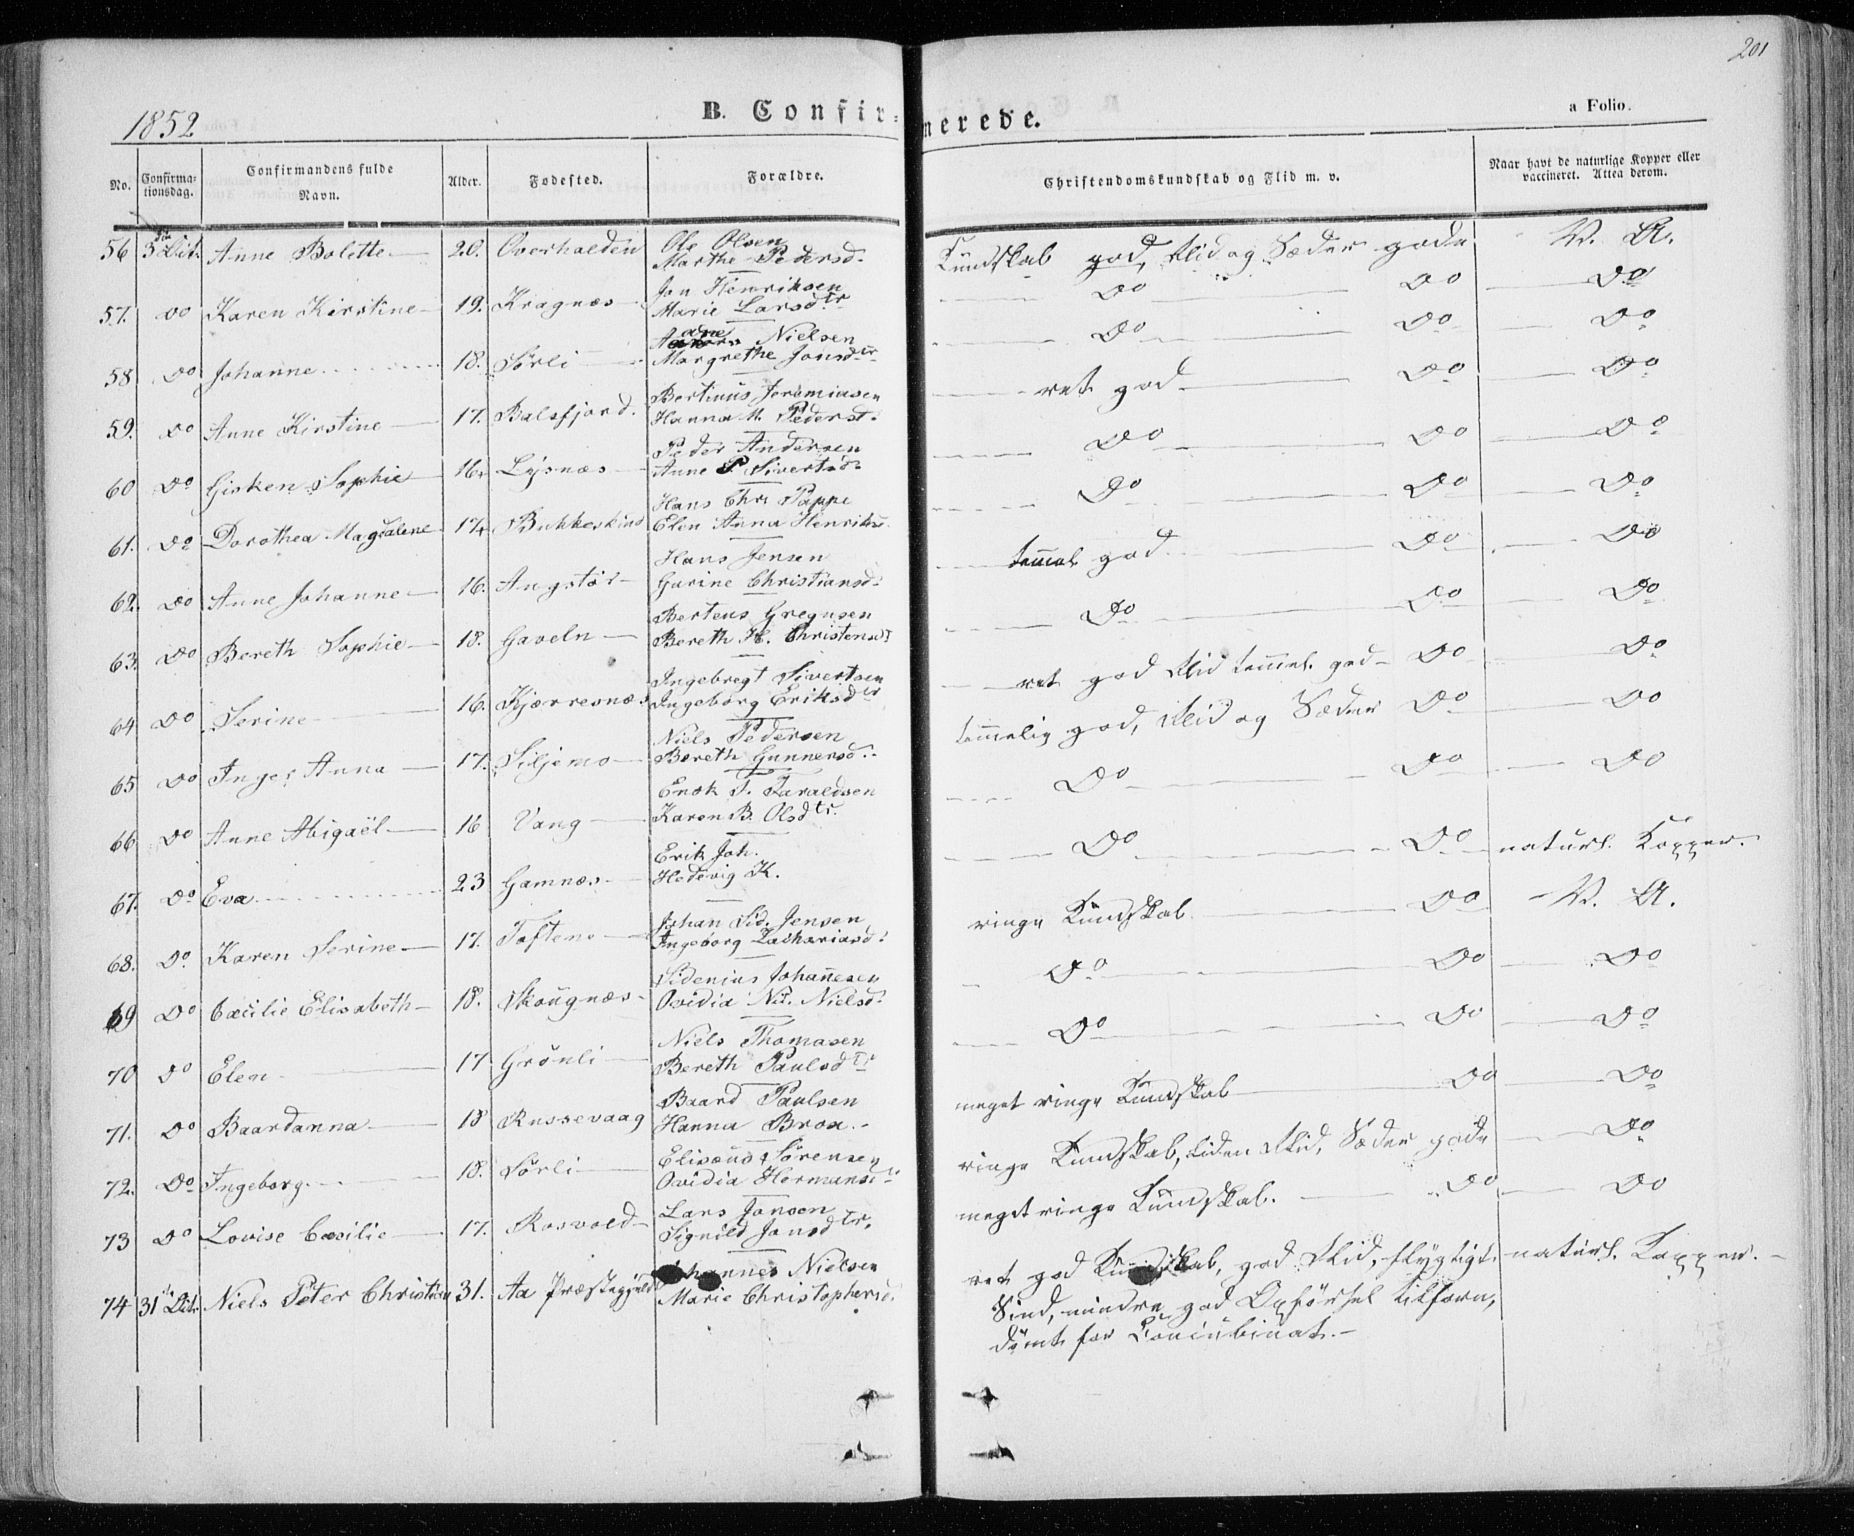 201
1852
B. Confirmerede.
a Folio.
No. Confirmationsdag. Confirmandens fulde Navn. Alder. Fødested. Forældre. Christendomskundskab og Flid m. v. Naar havt de naturlige Kopper eller vaccineret. Attea derom.
Ole Olsen
56 3 Oct. Anne Bolette 20. Overhalden Marthe Pedersd. Kundskab god, Flid og Sæder gode V. A.
Jon Henriksen
57. Do Karen Kirstine 19. Kragnæs Marie Larsdtr Do Do Do
Nielsen
58 Do Johanne 18. Sørli Margrethe Jonsdtr Do Do Do
Bertinus Jeremiasen
59. Do Anne Kirstine 17. Balsfjord. Hanna M. Pedersd. ret god Do Do
Peder Andersen
60 Do Gisken Sophie 16. Lysnæs Anne P Sivertsd. Do Do Do
Hans Chr. Pappe
61. Do Dorothea Magdalene 17. Bukkeskind Elen Anna Henriks. Do Do Do
Hans Jensen
62. Do Anne Johanne 16. Angstør Gurine Christiansd. temel god Do Do
Berteus Gregusen
63. Do Bereth Sophie 18. Gaveln Bereth H. Christensdr Do Do Do
Ingebregt Sivertsen
64 Do Serine 16. Kjærresnæs Ingeborg Eriksdtr ret god Flid temel. god Do Do
Niels Pedersen
65 Do Inger Anna 17. Siljemo Bereth Gunnersd. temmelig god, Flid og Sæder Do Do
Enok T. Taraldsen
66 Do Anne Abigaël 16 Vang Karen B. Olsdtr. Do Do Do
Erik Joh.
67. Do Eva 23 Gamnæs Hedevig K. Do Do naturl. Kopper.
Johan Sid. Jensen
68. Do Karen Serine 17. Toftene Ingeborg Zachariasd. ringe Kundskab Do V. A.
Sidenius Johannesen
69 Do Cæcilie Elisabeth 18. Skougnæs Ovidia Nielsd. Do Do Do
Niels Thomasen
70 Do Elen 17 Grönli Bereth Paulsdtr Do Do Do
Baard Paulsen
71. Do Baardanna 18 Russevaag Hanna Brox. meget ringe Kundskab Do Do
Elisæus Sørensen
72. Do Ingeborg. 18. Sörli Ovidia Hermansd. ringe Kundskab, liden Flid, Sæder gode Do
Lars Jonsen
73 Do Lovise Cæcilie 17. Rosvold Signild Jonsdtr. meget ringe Kundskab. Do Do
Johannes Nielsen
74 31 Oct. Niels Peter Christian 31. Aa Præstegjeld Marie Christophersd. ret god Kundskab, god Flid, flygtigt naturl. Kopper.
Sind, mindre god Opførsel tilforn,
dømt for Concubinat.